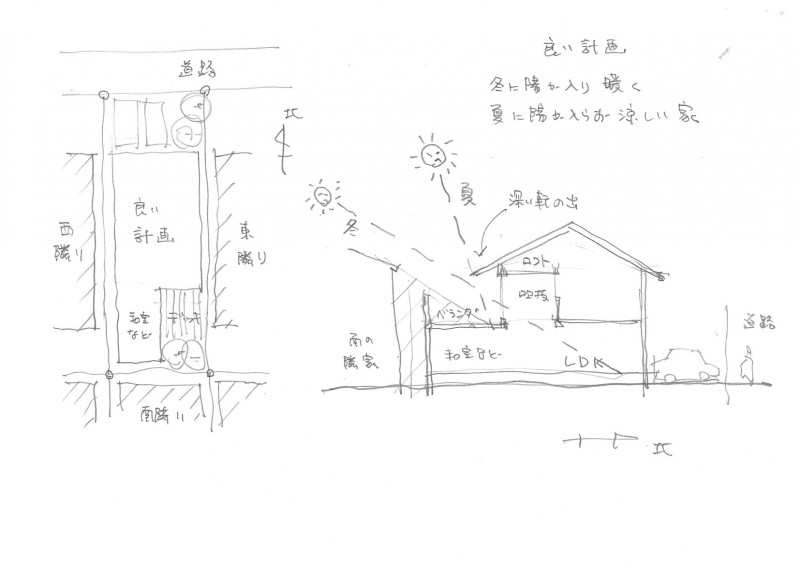 良い計画
冬に陽が入り 暖く
夏に陽が入らず 涼しい家
道路
北
良い
計画
西
隣り
東
隣り
和室
など
デッキ
南隣り
冬
夏
深い軒の出
ロフト
吹抜
ベランダ
和室など
LDK
南の
隣家
道路
北